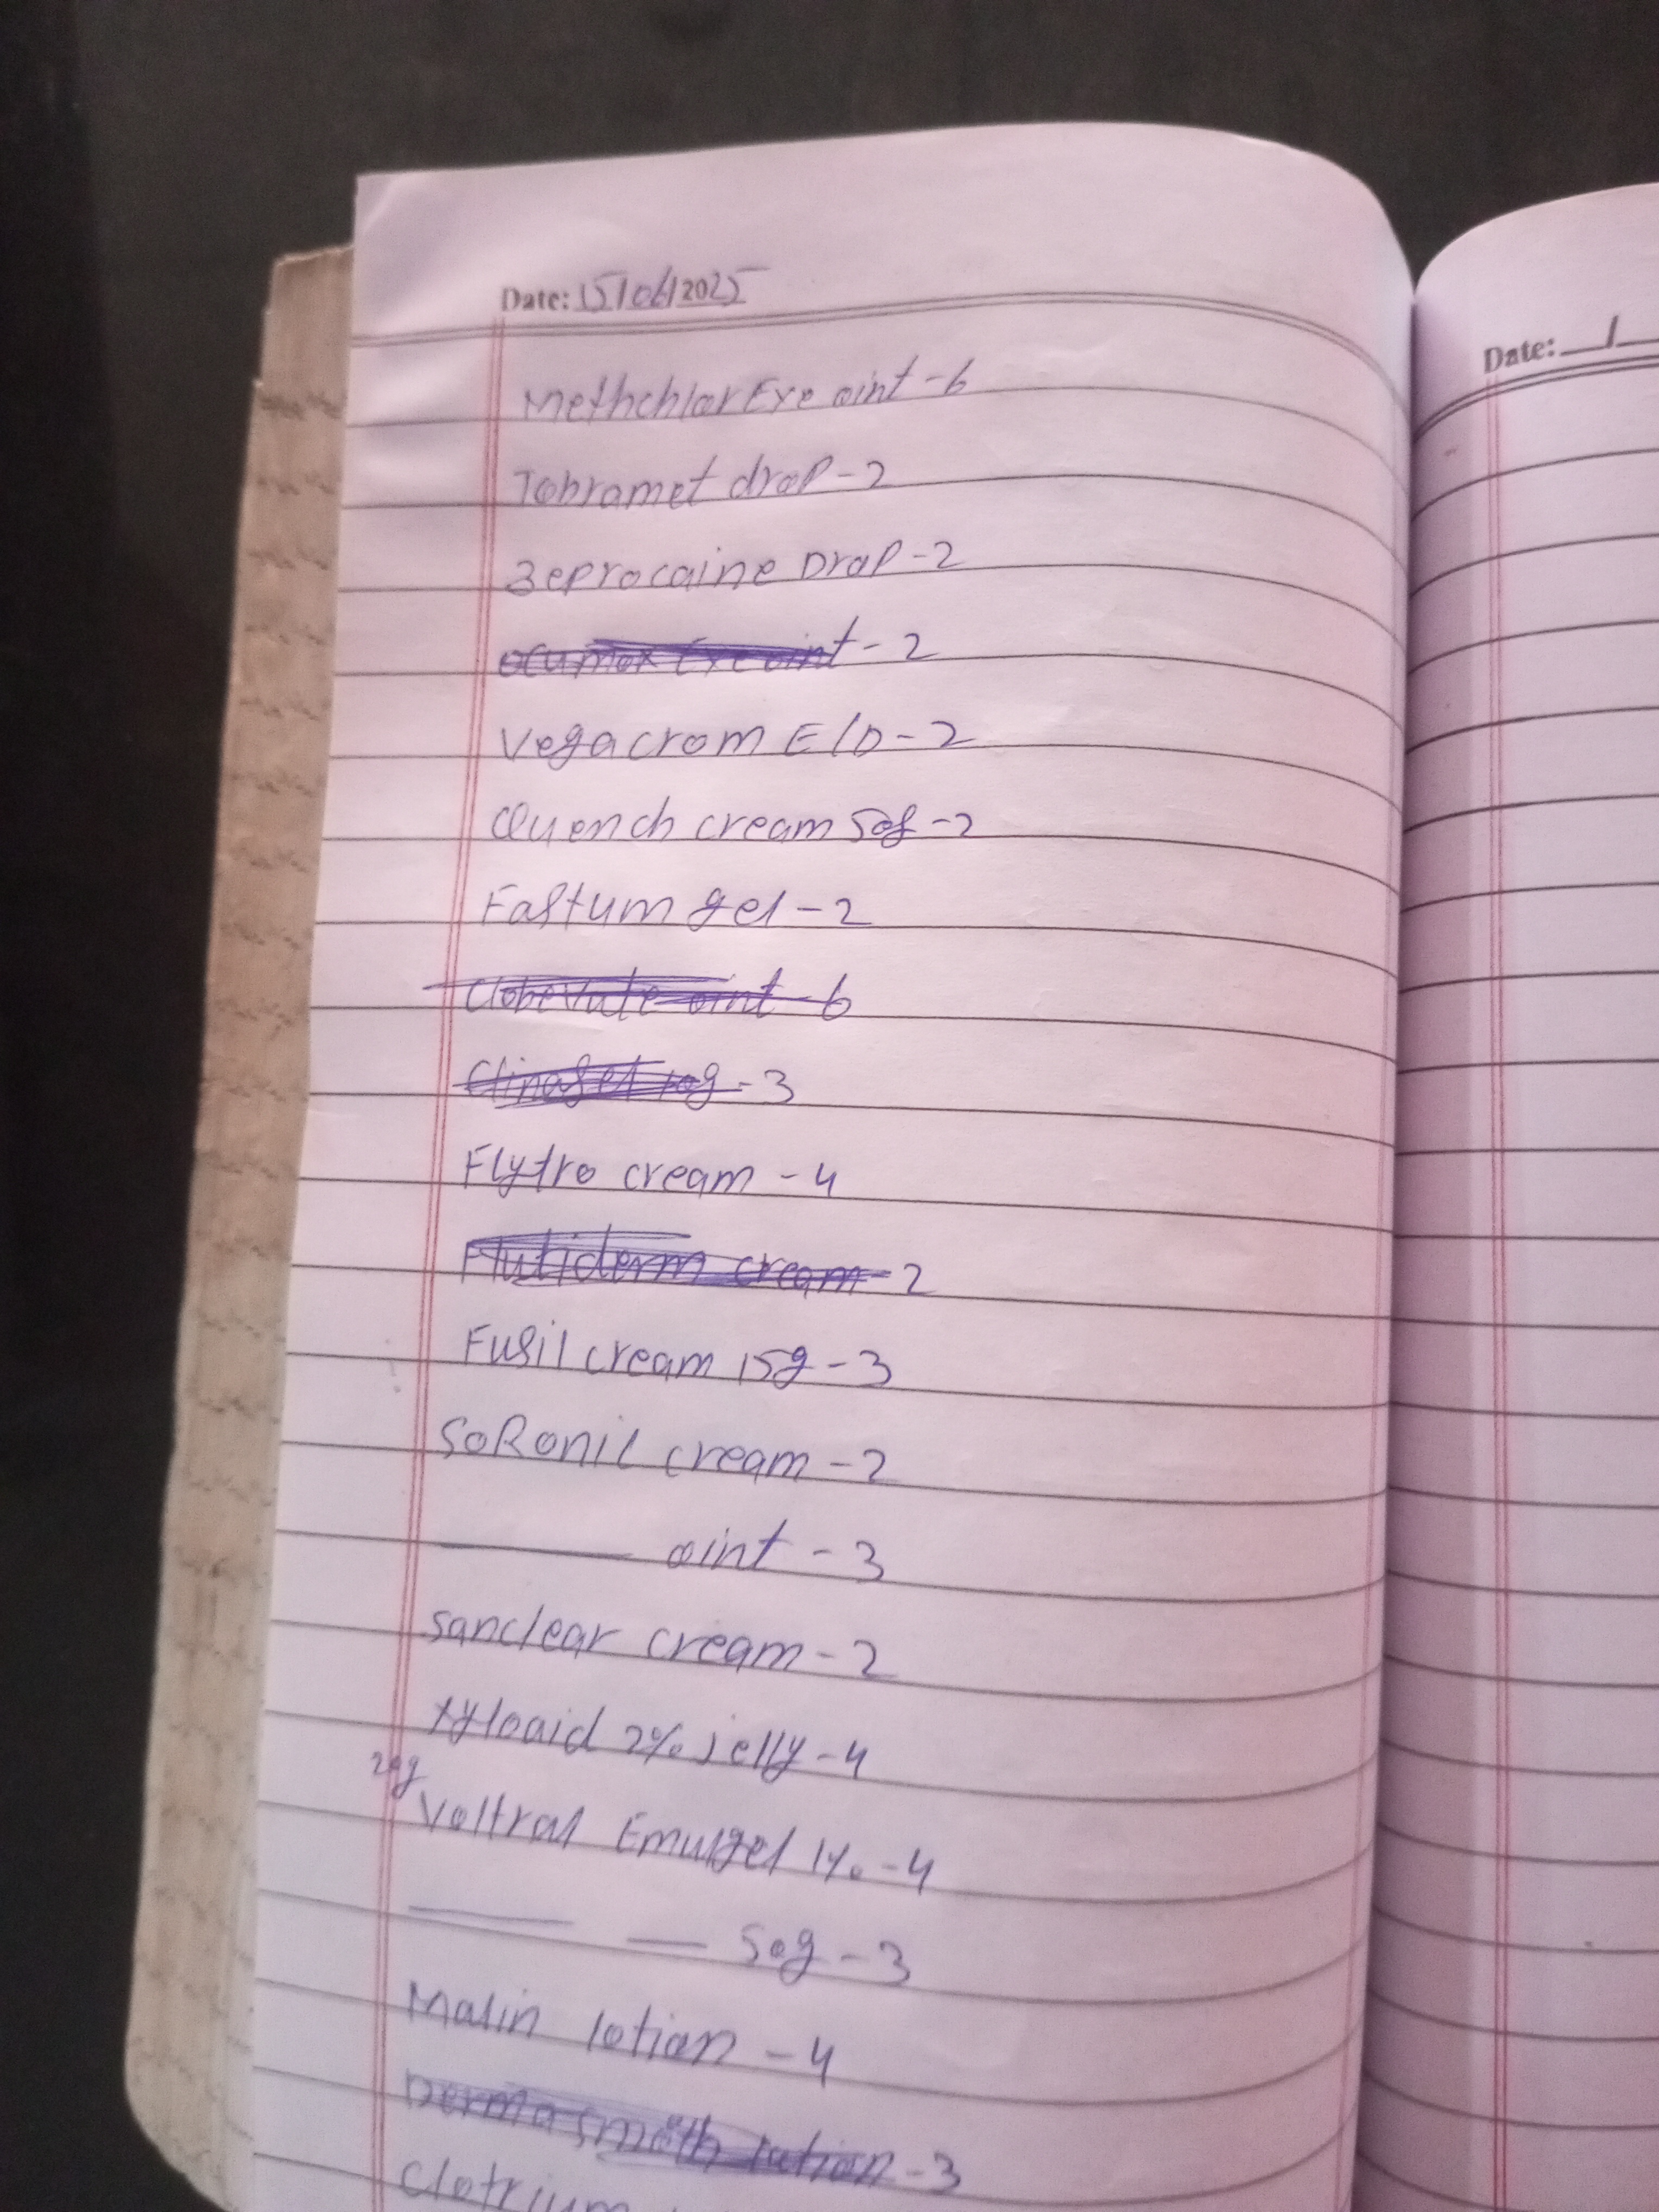 Date: 15/06/2025
Methchlor Eye oint - 6
Tobramet drop - 2
Zeprocaine Drop - 2
ocumox Eye oint - 2
Vegacrom E/D - 2
Quench cream 50g - 2
Fastum gel - 2
Clobevate oint - 6
Clinagel 10g - 3
Flytro cream - 4
Flutiderm cream - 2
Fusil cream 15g - 3
SoRonil cream - 2
oint - 3
Sanclear cream - 2
xyloaid 2% jelly - 4
20g
Voltral Emulgel 1% - 4
50g - 3
Malin lotion - 4
Derma smoth lotion - 3
Date: /